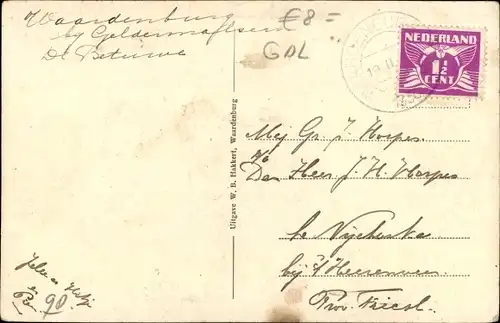 Waardenburg
by Geldermalsen
De Betuwe
€8=
GDL
NEDERLAND
1½
CENT
Uitgave W. B. Hakkert, Waardenburg
Mej Gr. J. Hospes
p/a
Den Heer J. H. Hospes
te Nijehaske
bij 't Heerenveen
Prov Friesl.
90